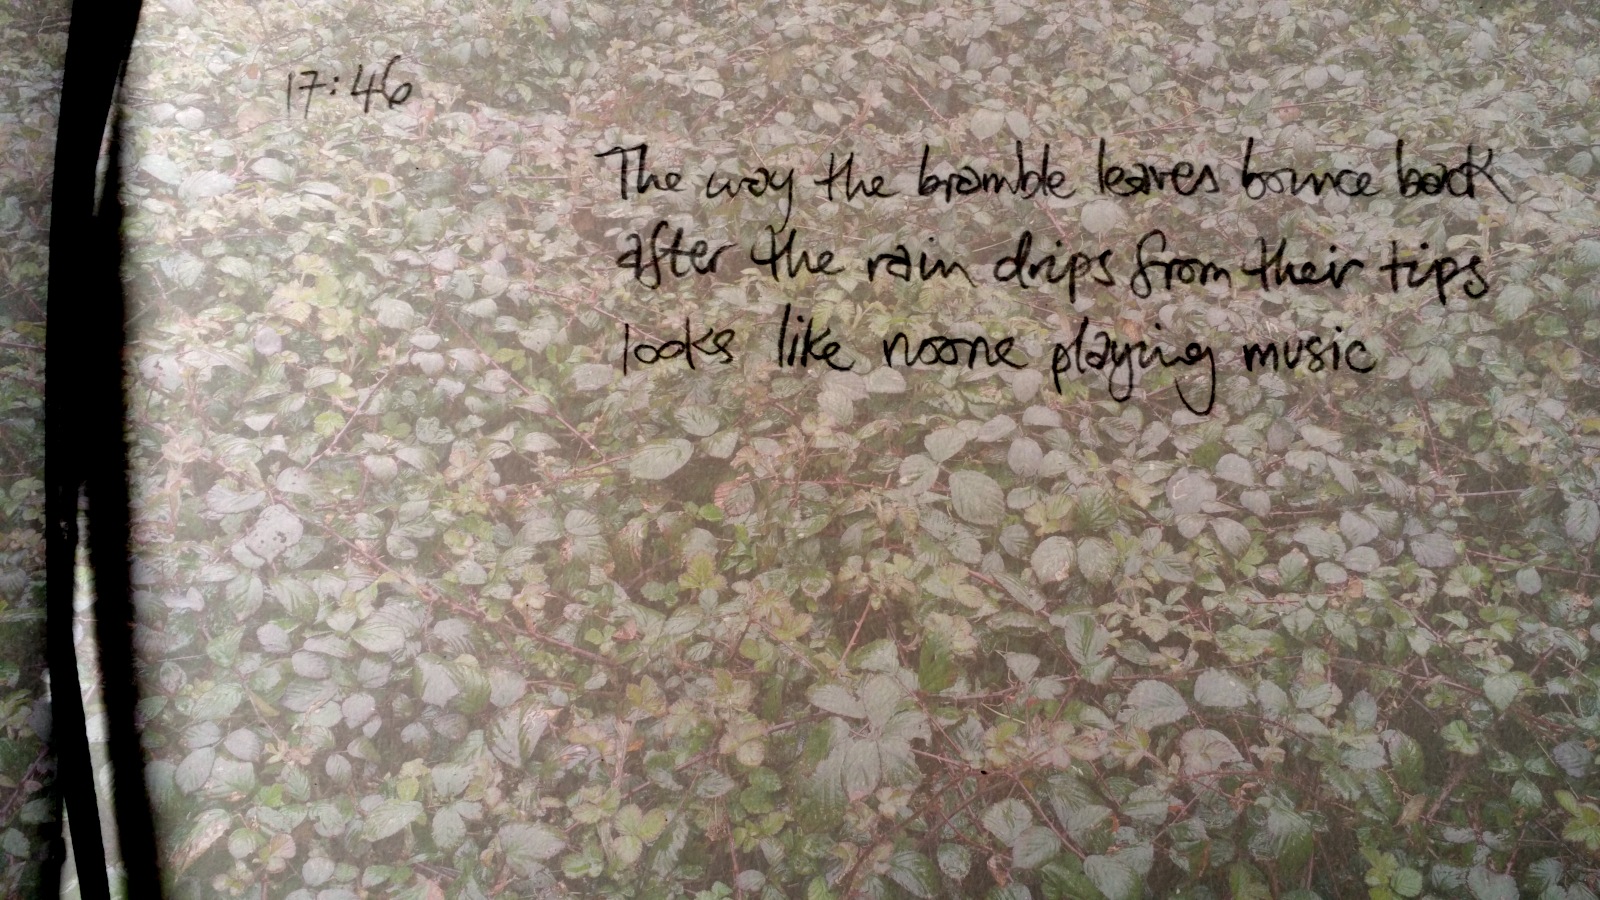 17:46
The way the bramble leaves bounce back
after the rain drips from their tips
looks like noone playing music